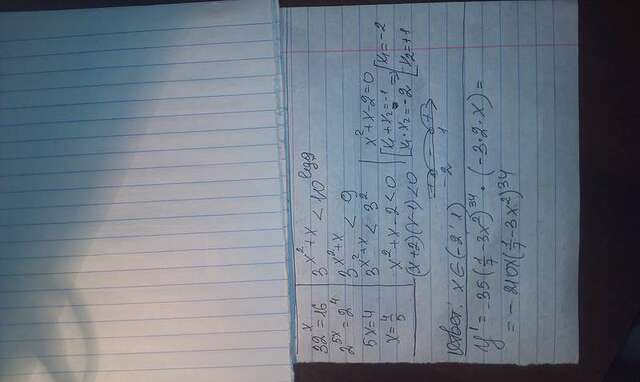 32^x = 16
2^5x = 2^4
5x = 4
x = 4/5
3^x²+x < 10^lg9
3^x²+x < 9
3^x²+x < 3²
x² + x - 2 < 0
(x+2)(x-1) < 0
x² + x - 2 = 0
[x₁ + x₂ = -1 => [x₁ = -2
[x₁ · x₂ = -2 [x₂ = +1
+ - +
-2 1
Ответ: x ∈ (-2; 1)
y' = -35(1/7 - 3x²)^34 · (-3·2·x) =
= -210x(1/7 - 3x²)^34